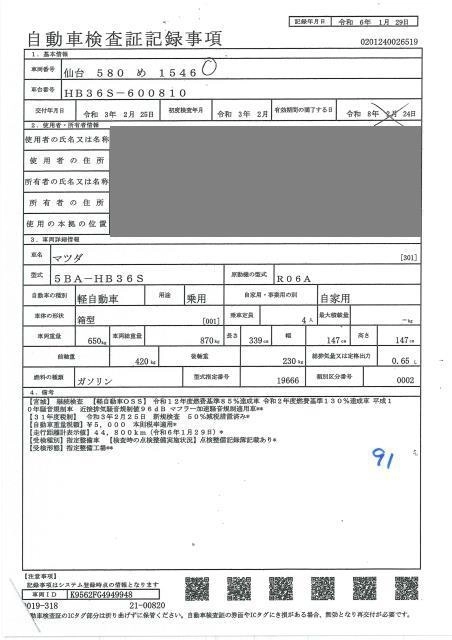 記録年月日 令和 6年 1月 29日
自動車検査証記録事項
0201240026519
1．基本情報
車両番号 仙台 580 め 1546
車台番号 HB36S-600810
交付年月日 令和 3年 2月 25日 初度検査年月 令和 3年 2月 有効期間の満了する日 令和 8年 2月 24日
2．使用者・所有者情報
使用者の氏名又は名称
使用者の住所
所有者の氏名又は名称
所有者の住所
使用の本拠の位置
3．車両詳細情報
車名 マツダ [301]
型式 5BA-HB36S 原動機の型式 R06A
自動車の種別 軽自動車 用途 乗用 自家用・事業用の別 自家用
車体の形状 箱型 [001] 乗車定員 4人 最大積載量 -kg
車両重量 650kg 車両総重量 870kg 長さ 339cm 幅 147cm 高さ 147cm
前軸重 420kg 後軸重 230kg 総排気量又は定格出力 0.65 L
燃料の種類 ガソリン 型式指定番号 19666 類別区分番号 0002
4．備考
【宮城】 継続検査 【軽自動車OSS】 令和12年度燃費基準85%達成車 令和2年度燃費基準130%達成車 平成1
0年騒音規制車 近接排気騒音規制値96dB マフラー加速騒音規制適用車**
【31年度税制】 令和3年2月25日 新規検査 50%減税措置済み*
【自動車重量税額】 ¥5,000 本則税率適用*
【走行距離計表示値】 44,800km (令和6年1月29日)*
【受検種別】 指定整備車 【検査時の点検整備実施状況】 点検整備記録簿記載あり*
【受検形態】 指定整備工場*
91
【注意事項】
記録事項はシステム登録時点の情報となります
車両ID K9562FG4949948
019-318 21-00820
動車検査証のICタグ部分は折り曲げずに保管ください。自動車検査証の券面やICタグにき損がある場合、無効となり再交付が必要です。